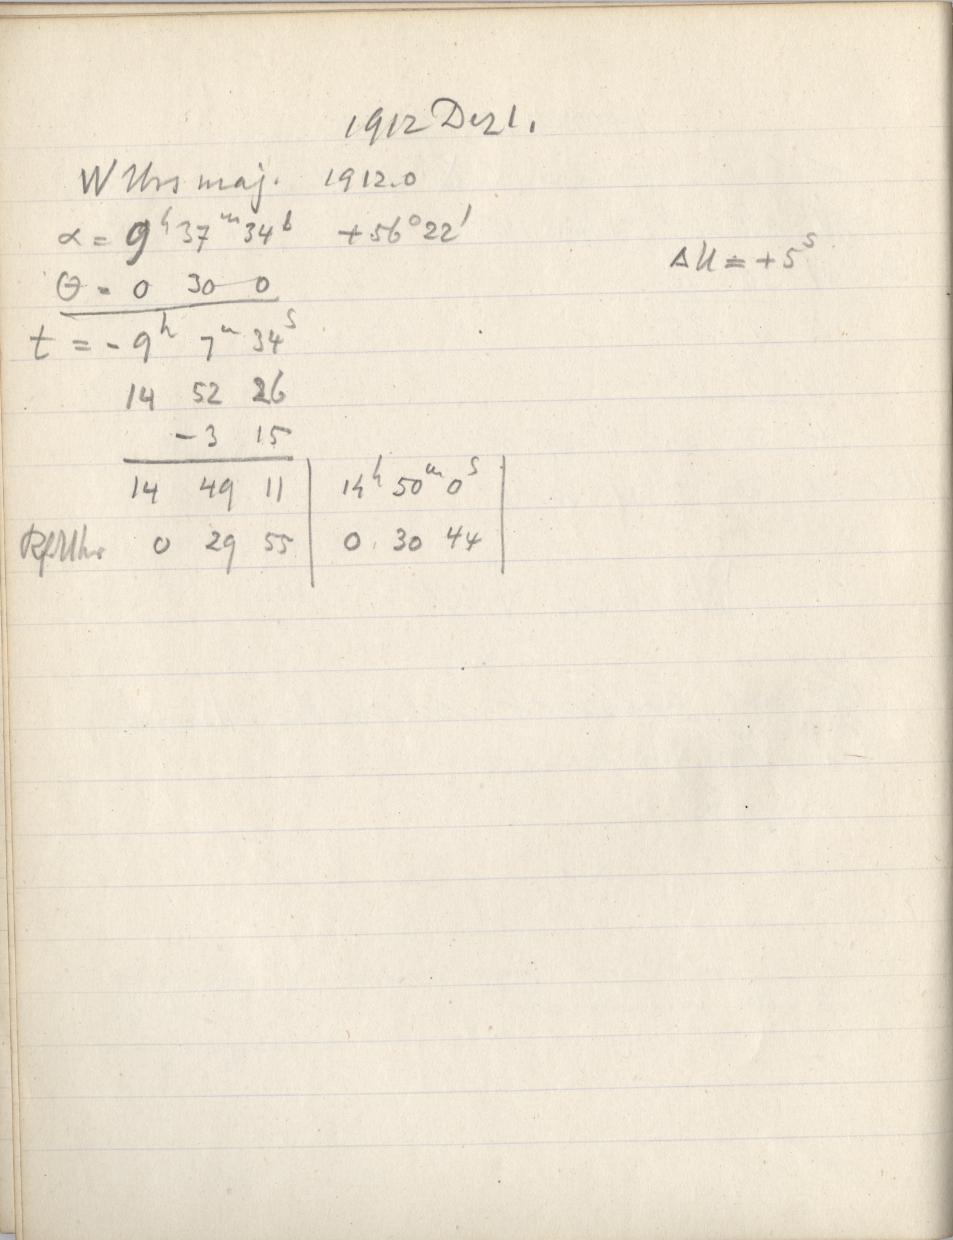 1912 Dez 1.
W Urs maj. 1912.0
α = 9ʰ 37ᵐ 34ˢ +56°22'
ΔU = +5ˢ
θ = 0 30 0
t = -9ʰ 7ᵐ 34ˢ
14 52 26
-3 15
14 49 11 | 14ʰ 50ᵐ 0ˢ |
0 29 55 | 0 30 44 |